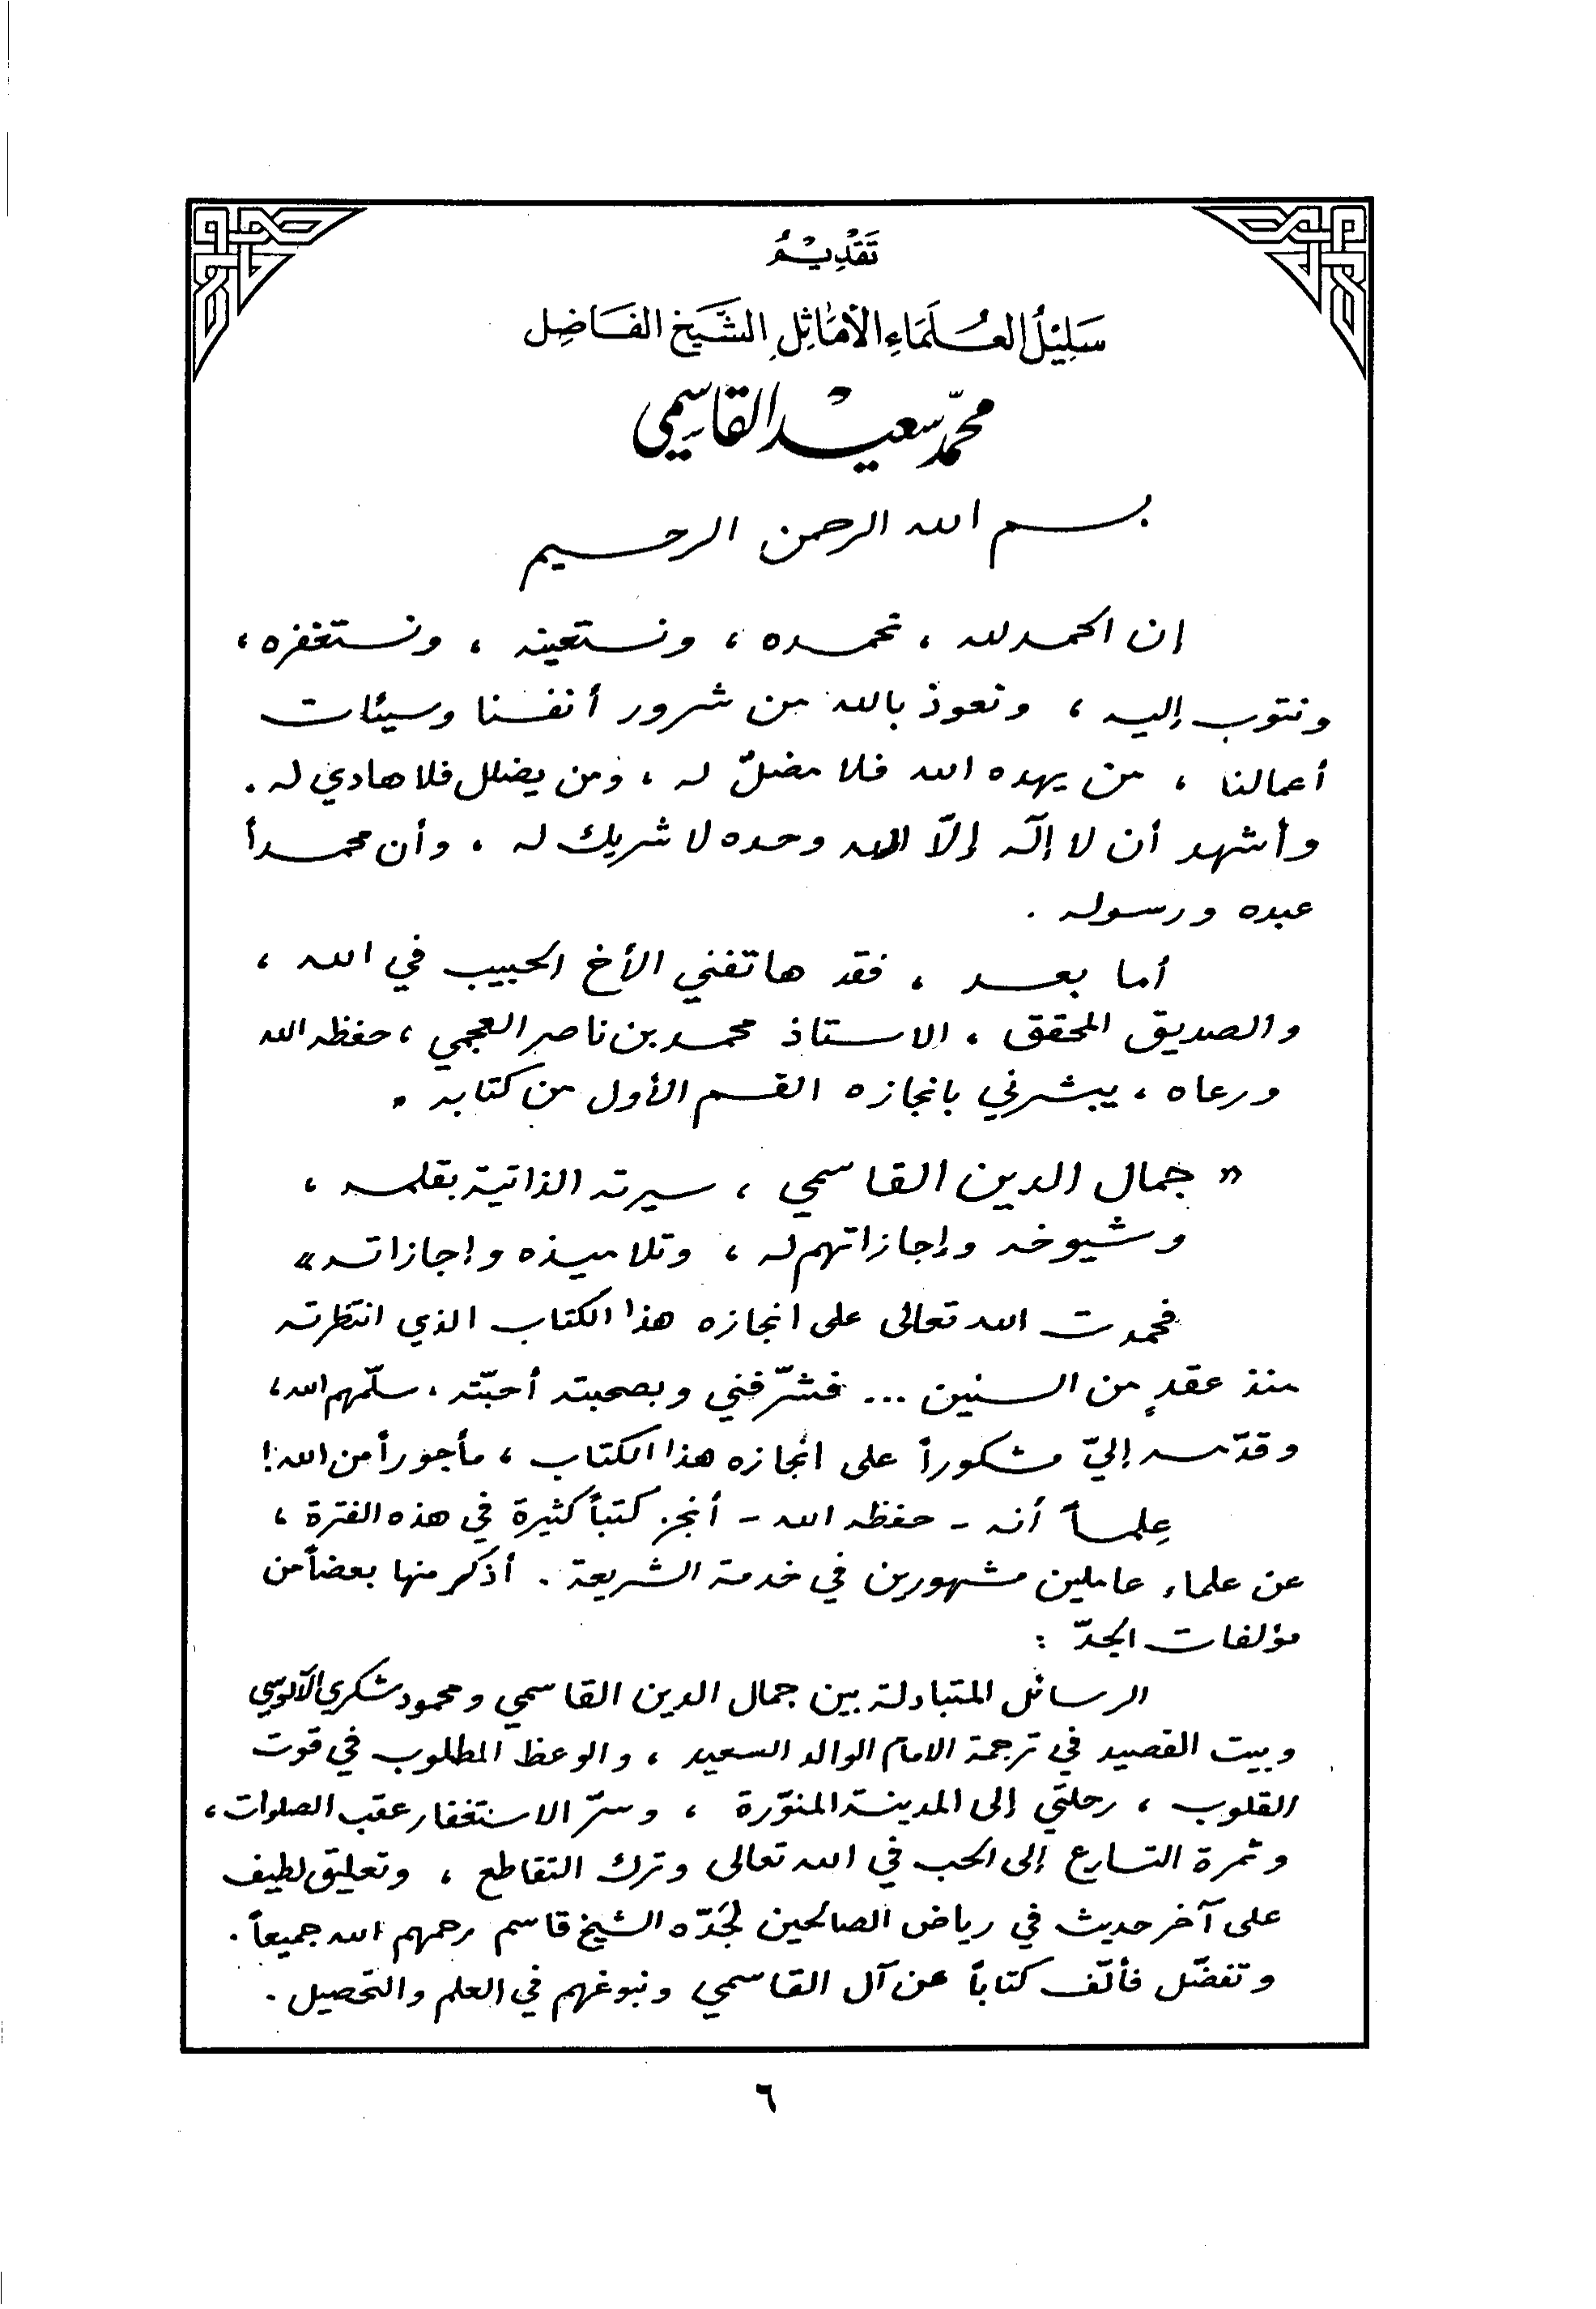 تَقْدِيْمُ
سَلِيْلُ العُلَمَاءِ الأمَاثِلِ الشَّيْخِ الفَاضِلِ
محمّد سعيْد القاسِمي
بسم الله الرحمن الرحيم
إن الحمد لله ، نحمده ، ونستعينه ، ونستغفره ،
ونتوب إليه ، ونعوذ بالله من شرور أنفسنا وسيئات
أعمالنا ، من يهده الله فلا مضلّ له ، ومن يضلل فلا هادي له .
وأشهد أن لا إلٓه إلاّ الله وحده لا شريك له ، وأن محمداً
عبده ورسوله .
أما بعد ، فقد هاتفني الأخ الحبيب في الله ،
والصديق المحقق ، الاستاذ محمد بن ناصر العجمي ، حفظه الله
ورعاه ، يبشرني بانجازه القسم الأول من كتابه "
« جمال الدين القاسمي ، سيرته الذاتية بقلمه ،
وشيوخه وإجازاتهم له ، وتلاميذه واجازاته »
فحمدت الله تعالى على انجازه هذا الكتاب الذي انتظرته
منذ عقدٍ من السنين ... فشرّفني وبصحبته أحبّته ، سلّمهم الله ،
وقدّمه إليّ مشكوراً على انجازه هذا الكتاب ، مأجوراً من الله !
عِلماً أنه - حفظه الله - أنجز كتباً كثيرة في هذه الفترة ،
عن علماء عاملين مشهورين في خدمة الشريعة . أذكر منها بعضاً من
مؤلفات الجدّ :
الرسائل المتبادلة بين جمال الدين القاسمي ومحمود شكري الآلوسي
وبيت القصيد في ترجمة الامام الوالد السعيد ، والوعظ المطلوب في قوت
القلوب ، رحلتي إلى المدينة المنوّرة ، وسرّ الاستغفار عقب الصلوات ،
وثمرة التسارع إلى الحب في الله تعالى وترك التقاطع ، وتعليق لطيف
على آخر حديث في رياض الصالحين لجَدّه الشيخ قاسم رحمهم الله جميعاً .
وتفضّل فألّف كتاباً عن آل القاسمي ونبوغهم في العلم والتحصيل .
٦